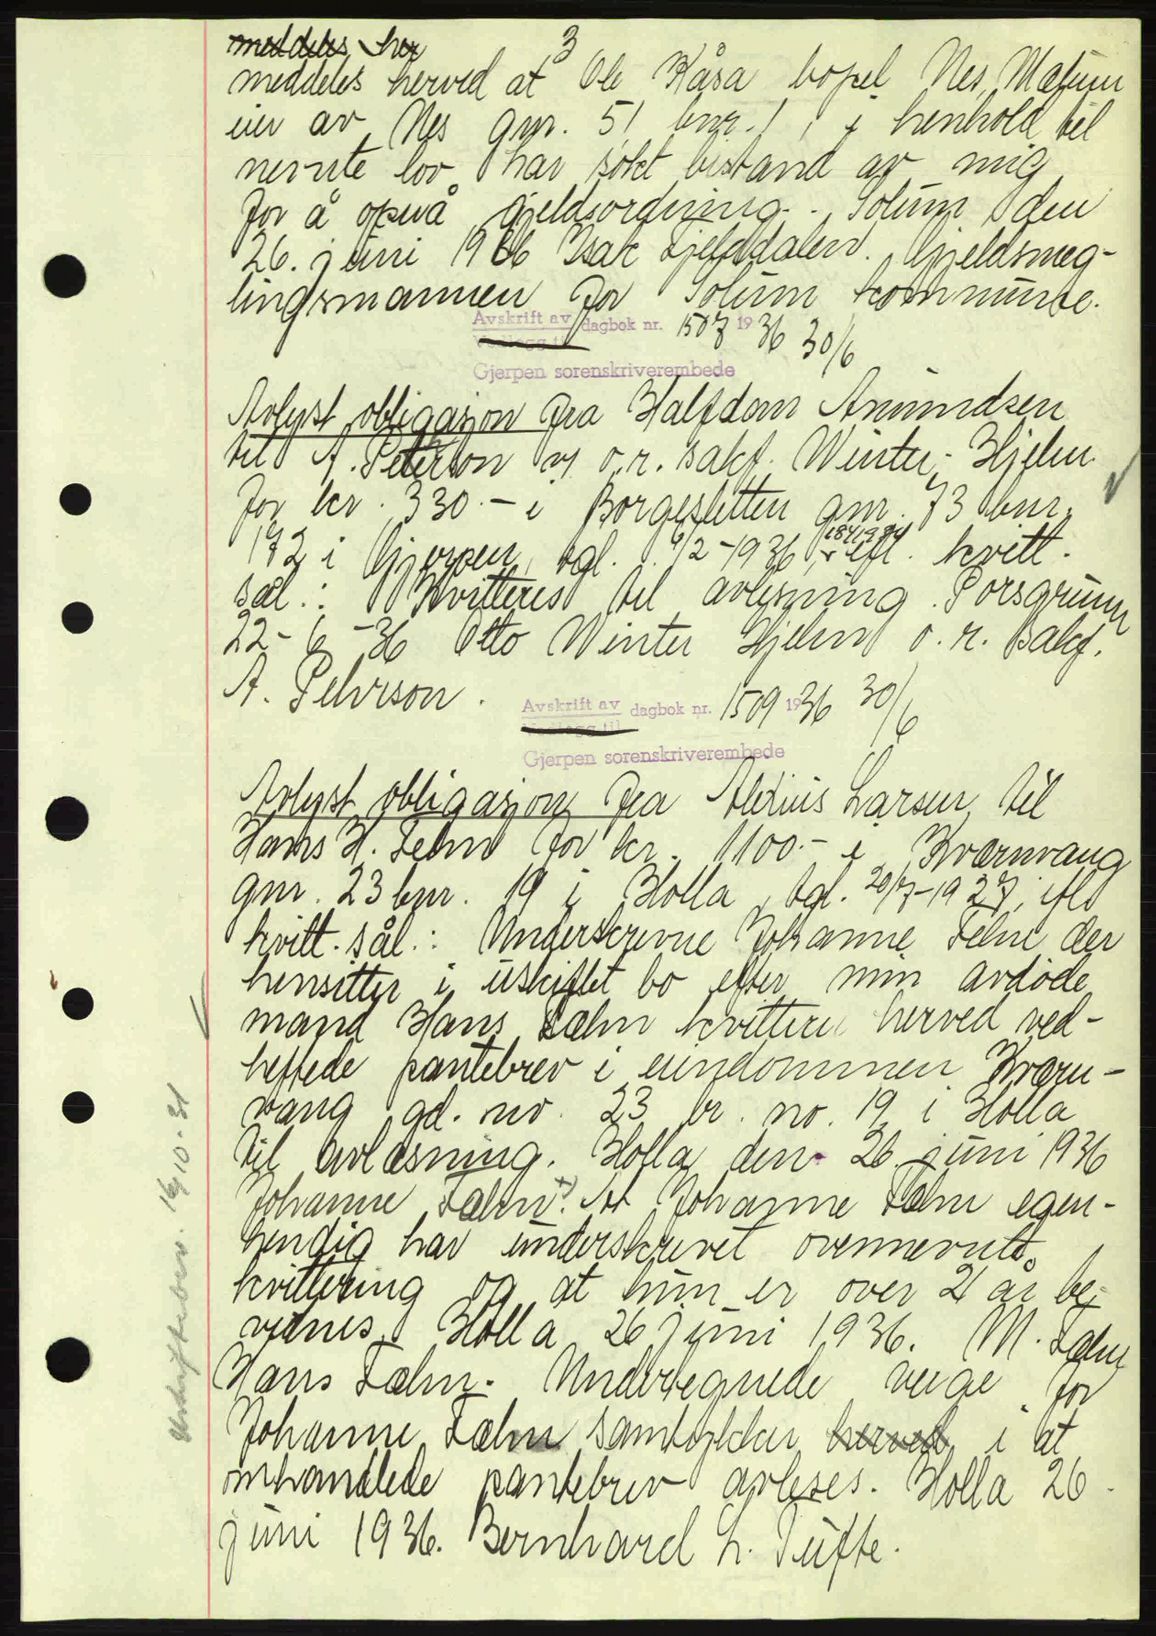 meddeles her
3
meddeles herved at Ole Kåsa bopel Nes, Mælum
eier av Nes gnr. 51 bnr. 1, i henhold til
nevnte lov har søkt bistand av mig
for å opnå gjeldsordning. Solum den
26. juni 1936 Isak Fjelldalen. Gjeldsmeg-
lingsmannen for Solum kommune.
Avskrift av dagbok nr. 1507 1936 30/6
Vedlegg til
Gjerpen sorenskriverembede
Avlyst obligasjon fra Halfdan Amundsen
til A. Peterson v/ o.r. sakf. Winter-Hjelm
for kr. 330.- i Borgesletten gnr. 73 bnr.
172 i Gjerpen, tgl. /2-1936, ifl. kvitt.
sål.: Kvitteres til avlysning. Porsgrunn
22-6-36 Otto Winter Hjelm o.r. sakf.
A. Pehrson.
Avskrift av dagbok nr. 1509 1936 30/6
Vedlegg til
Gjerpen sorenskriverembede
Avlyst obligasjon fra Alexius Larsen til
Hans H. Fehn for kr. 1100.- i Kværnvang
gnr. 23 bnr. 19 i Holla, tgl. 20/7-1927, ifl
kvitt. sål.: Underskrevne Johanne Fehn der
hensitter i uskiftet bo efter min avdøde
mand Hans Fæhn kvitterer herved ved-
heftede pantebrev i eiendommen Kværn-
vang gd. no. 23 br. no. 19 i Holla
til avlæsning. Holla den 26 juni 1936
Johanne Fæhn. +) At Johanne Fæhn egen-
hendig har underskrevet ovennevnte
kvittering og at hun er over 21 år be-
vidnes. Holla 26 juni 1936. M. Fæhn
Hans Fæhn. Undertegnede verge for
Johanne Fæhn samtykker herved i at
omhandlede pantebrev avleses. Holla 26
juni 1936. Bernhard L. Tufte.